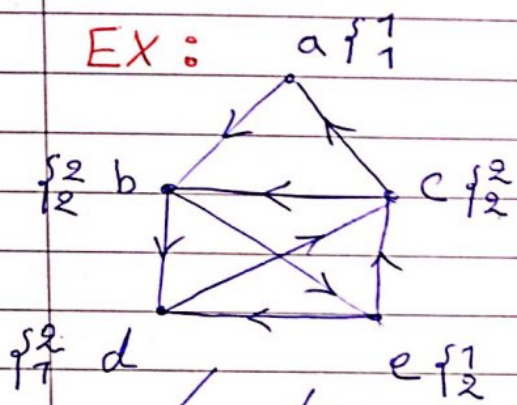 EX: a {1 1
{2 2 b c {2 2
{2 1 d e {1 2